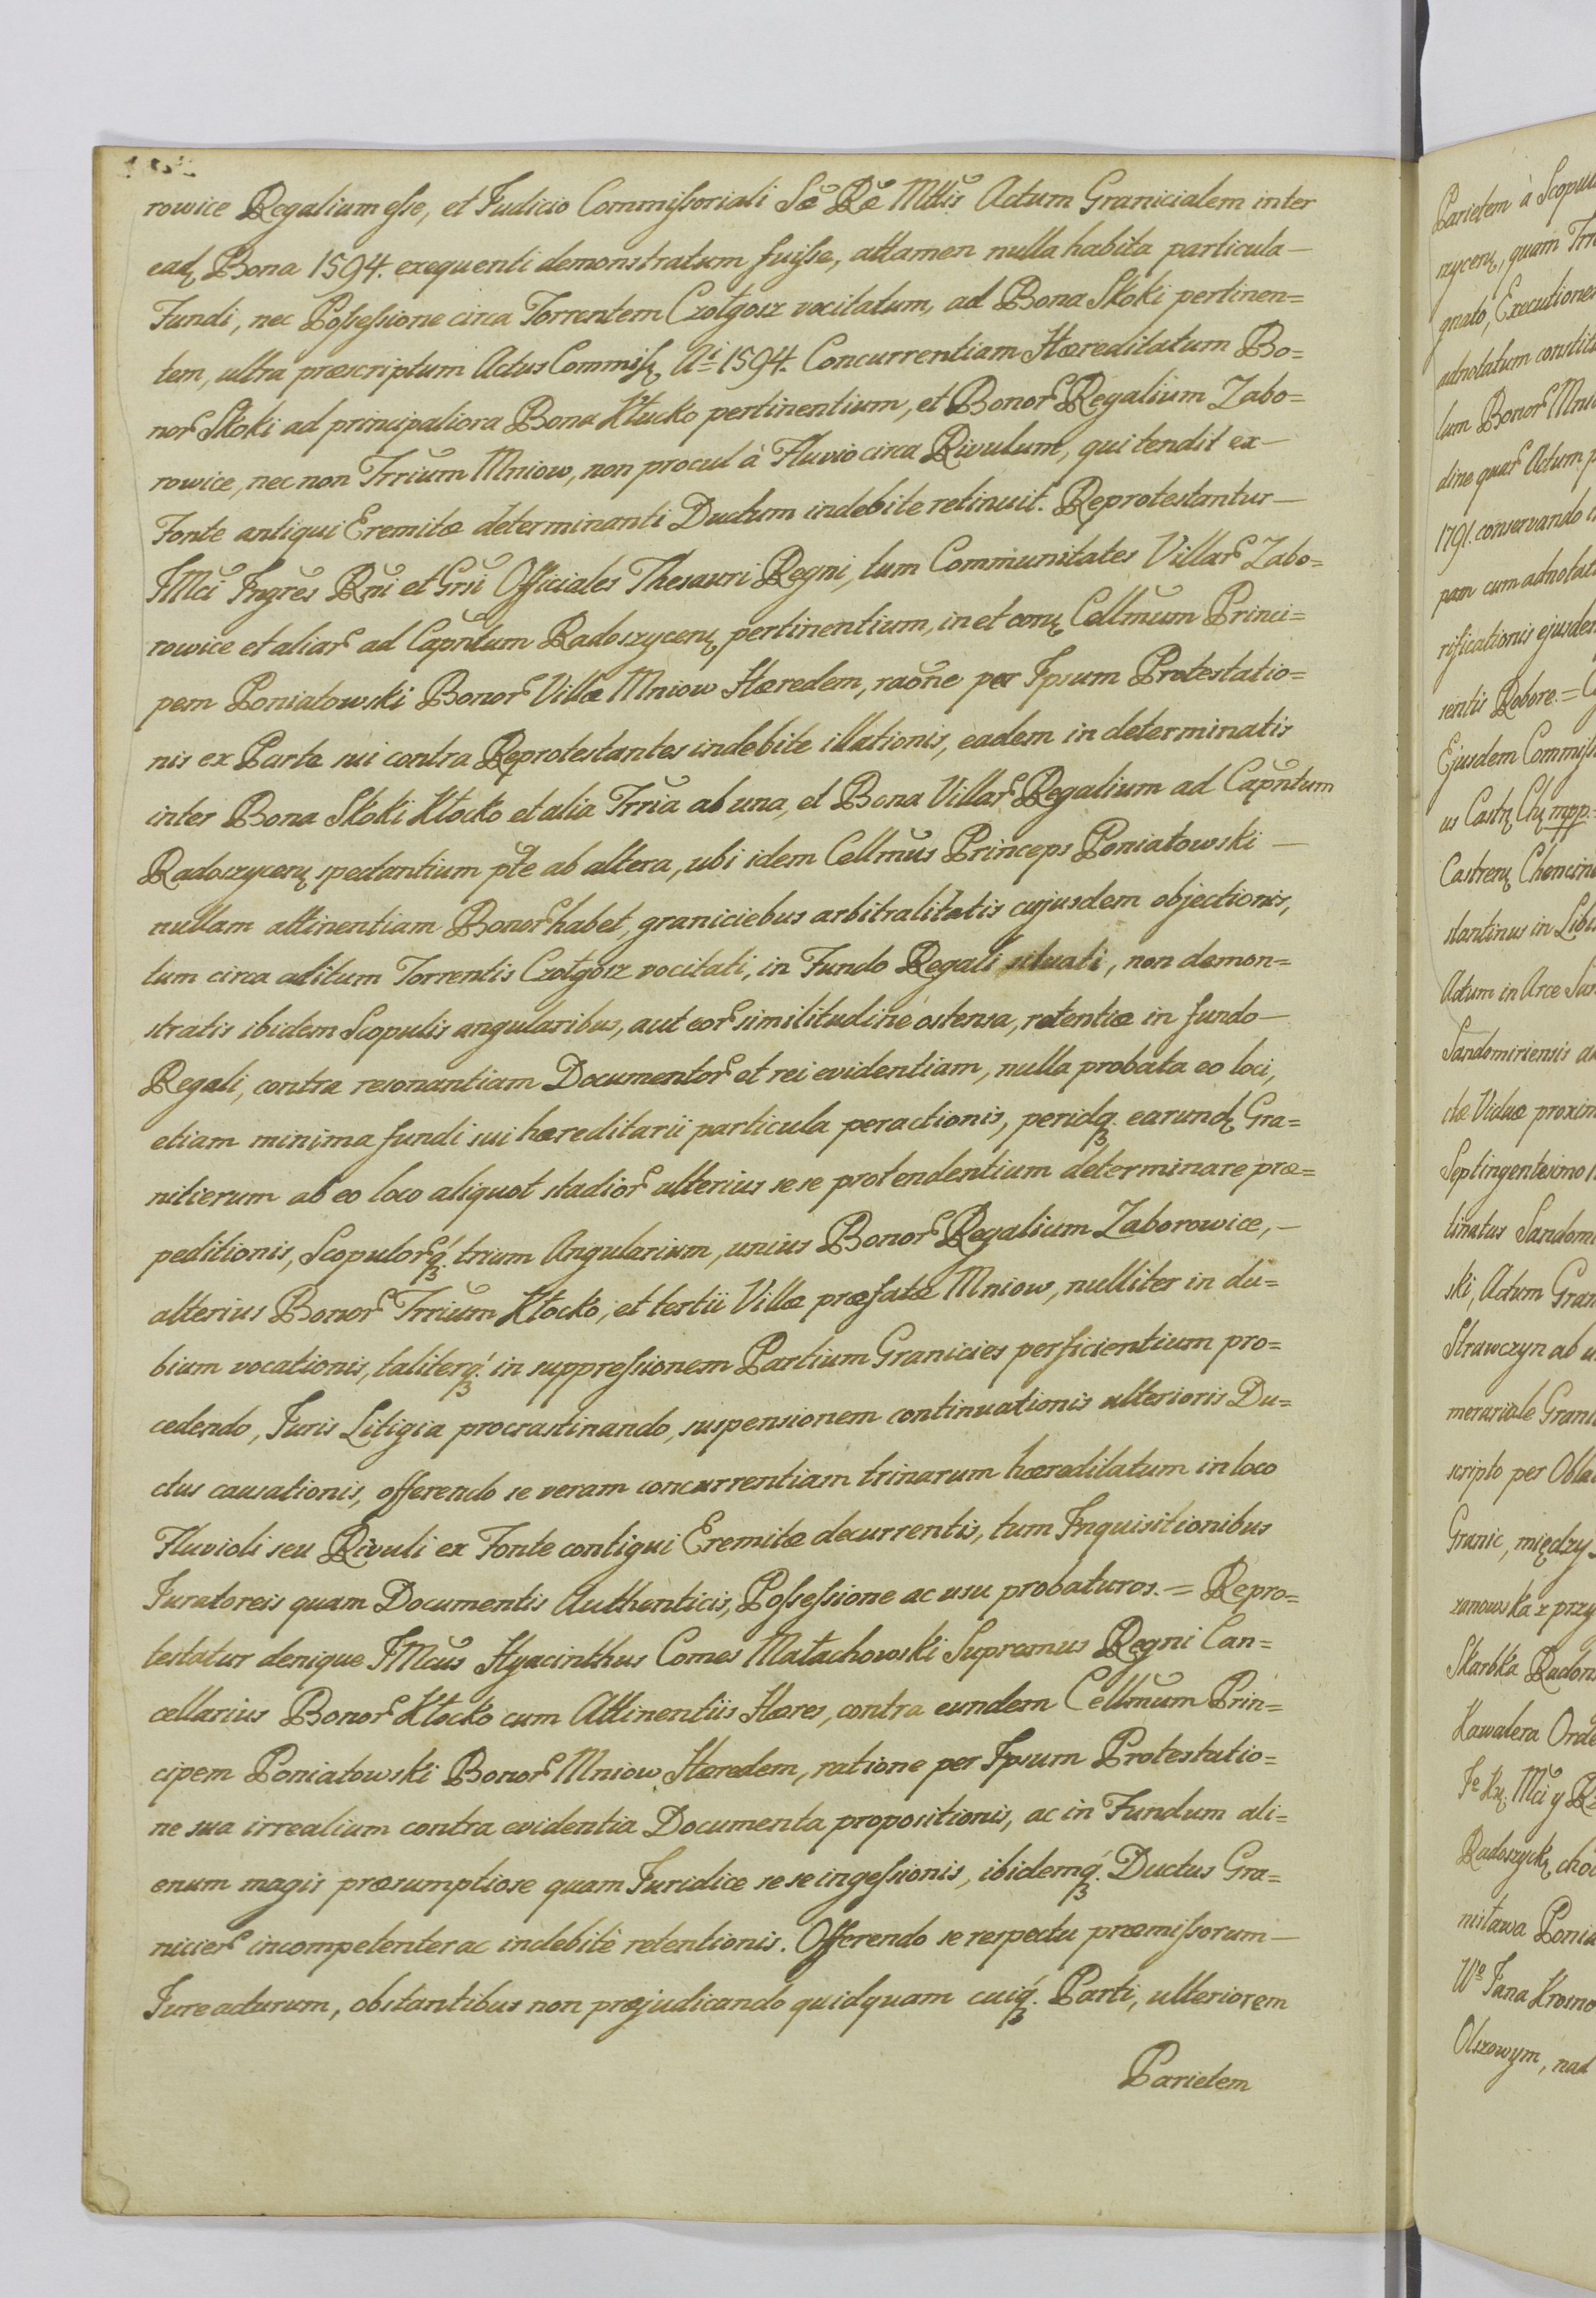 rowice Regalium esse, et Judicio Commissoriali Sæ Ræ Mttis Actum Granicialem inter
ead. Bona 1594. exequenti demonstratum fuisse, attamen nulla habita particula —
Fundi, nec Possessione circa Torrentem Czołgosz vocitatum, ad Bona Skoki pertinen=
tem, ultra præscriptum Actus Commiss. Ai 1594. Concurrentiam Hæreditatum Bo=
nor Skoki ad principaliora Bona Kłucko pertinentium, et Bonor Regalium Zabo=
rowice, nec non Trrium Mniow, non procul à Fluvio circa Rivulum, qui tendit ex —
Fonte antiqui Eremitæ determinanti Ductum indebite retinuit. Reprotestantur —
JMci Jngres Rni et Grsi Officiales Thesauri Regni, tum Communitates Villar Zabo=
rowice et aliar ad Capntum Radoszycen. pertinentium, in et con. Cellmum Princi=
pem Poniatowski Bonor Villæ Mniow Hæredem, raone per Ipsum Protestatio=
nis ex Parte sui contra Reprotestantes indebite illationis, eadem in determinatis
inter Bona Skoki Kłocko et alia Trria ab una, et Bona Villar Regalium ad Capntum
Radoszycen. spectantium pte ab altera, ubi idem Cellmus Princeps Poniatowski —
nullam attinentiam Bonor habet, graniciebus arbitralitatis cujusdem objectionis,
tum circa aditum Torrentis Czołgosz vocitati, in Fundo Regali situati, non demon=
stratis ibidem Scopulis angularibus, aut eor similitudine ostensa, retentiæ in fundo —
Regali, contra resonantiam Documentor et rei evidentiam, nulla probata eo loci,
etiam minima fundi sui hæreditarii particula peractionis, peridq. earund. Gra=
nitierum ab eo loco aliquot stadior ulterius sese protendentium determinare præ=
peditionis, Scopulorq. trium Angularium, unius Bonor Regalium Zaborowice, —
alterius Bonor Trrium Kłocko, et tertii Villæ præfatæ Mniow, nulliter in du=
bium vocationis, taliterq. in suppressionem Partium Granicies perficientium pro=
cedendo, Juris Litigia procrastinando, suspensionem continuationis ulterioris Du=
ctus causationis, offerendo se veram concurrentiam trinarum hæreditatum in loco
Fluvioli seu Rivuli ex Fonte contigui Eremitæ decurrentis, tum Inquisitionibus
Juratoreis quam Documentis Authenticis, Possessione ac usu probaturos. = Repro=
testatur denique JMcus Hyacinthus Comes Małachowski Supremus Regni Can=
cellarius Bonor Kłocko cum Attinentiis Hæres, contra eundem Cellmum Prin=
cipem Poniatowski Bonor Mniow Hæredem, ratione per Ipsum Protestatio=
ne sua irrealium contra evidentia Documenta propositionis, ac in Fundum ali=
enum magis præsumptiose quam Juridice sese ingessionis, ibidemq. Ductus Gra=
nicier incompetenter ac indebite retentionis. Offerendo se respectu præmissorum —
Jure acturum, obstantibus non præjudicando quidquam cuiq. Parti, ulteriorem
Parietem
Parietem à Scopul
rycen., quam Trr
gnato, Executione
adnotatum constit
lum Bonor Mni
dine quar Actum p
1791. conservando
pam cum adnotat
rificationis ejusde
sentis Robore. = C
Ejusdem Commiss
us Castr. Ch. mpp.
Castren. Chencin
stantinus in Lib
Actum in Arce Sa
Sandomiriensis a
ctæ Viduæ proxim
Septingentesimo
tinatus Sandom
ski, Actum Gran
Strawczyn ab u
merariale Grani
scripto per Obla
Granic, między
ranowska z przy
Skarbka Radons
Kawalera Orde
Je Kx. Mci y R
Radoszyck. cho
nisława Ponia
Wo Jana Krosno
Olszowym, nad